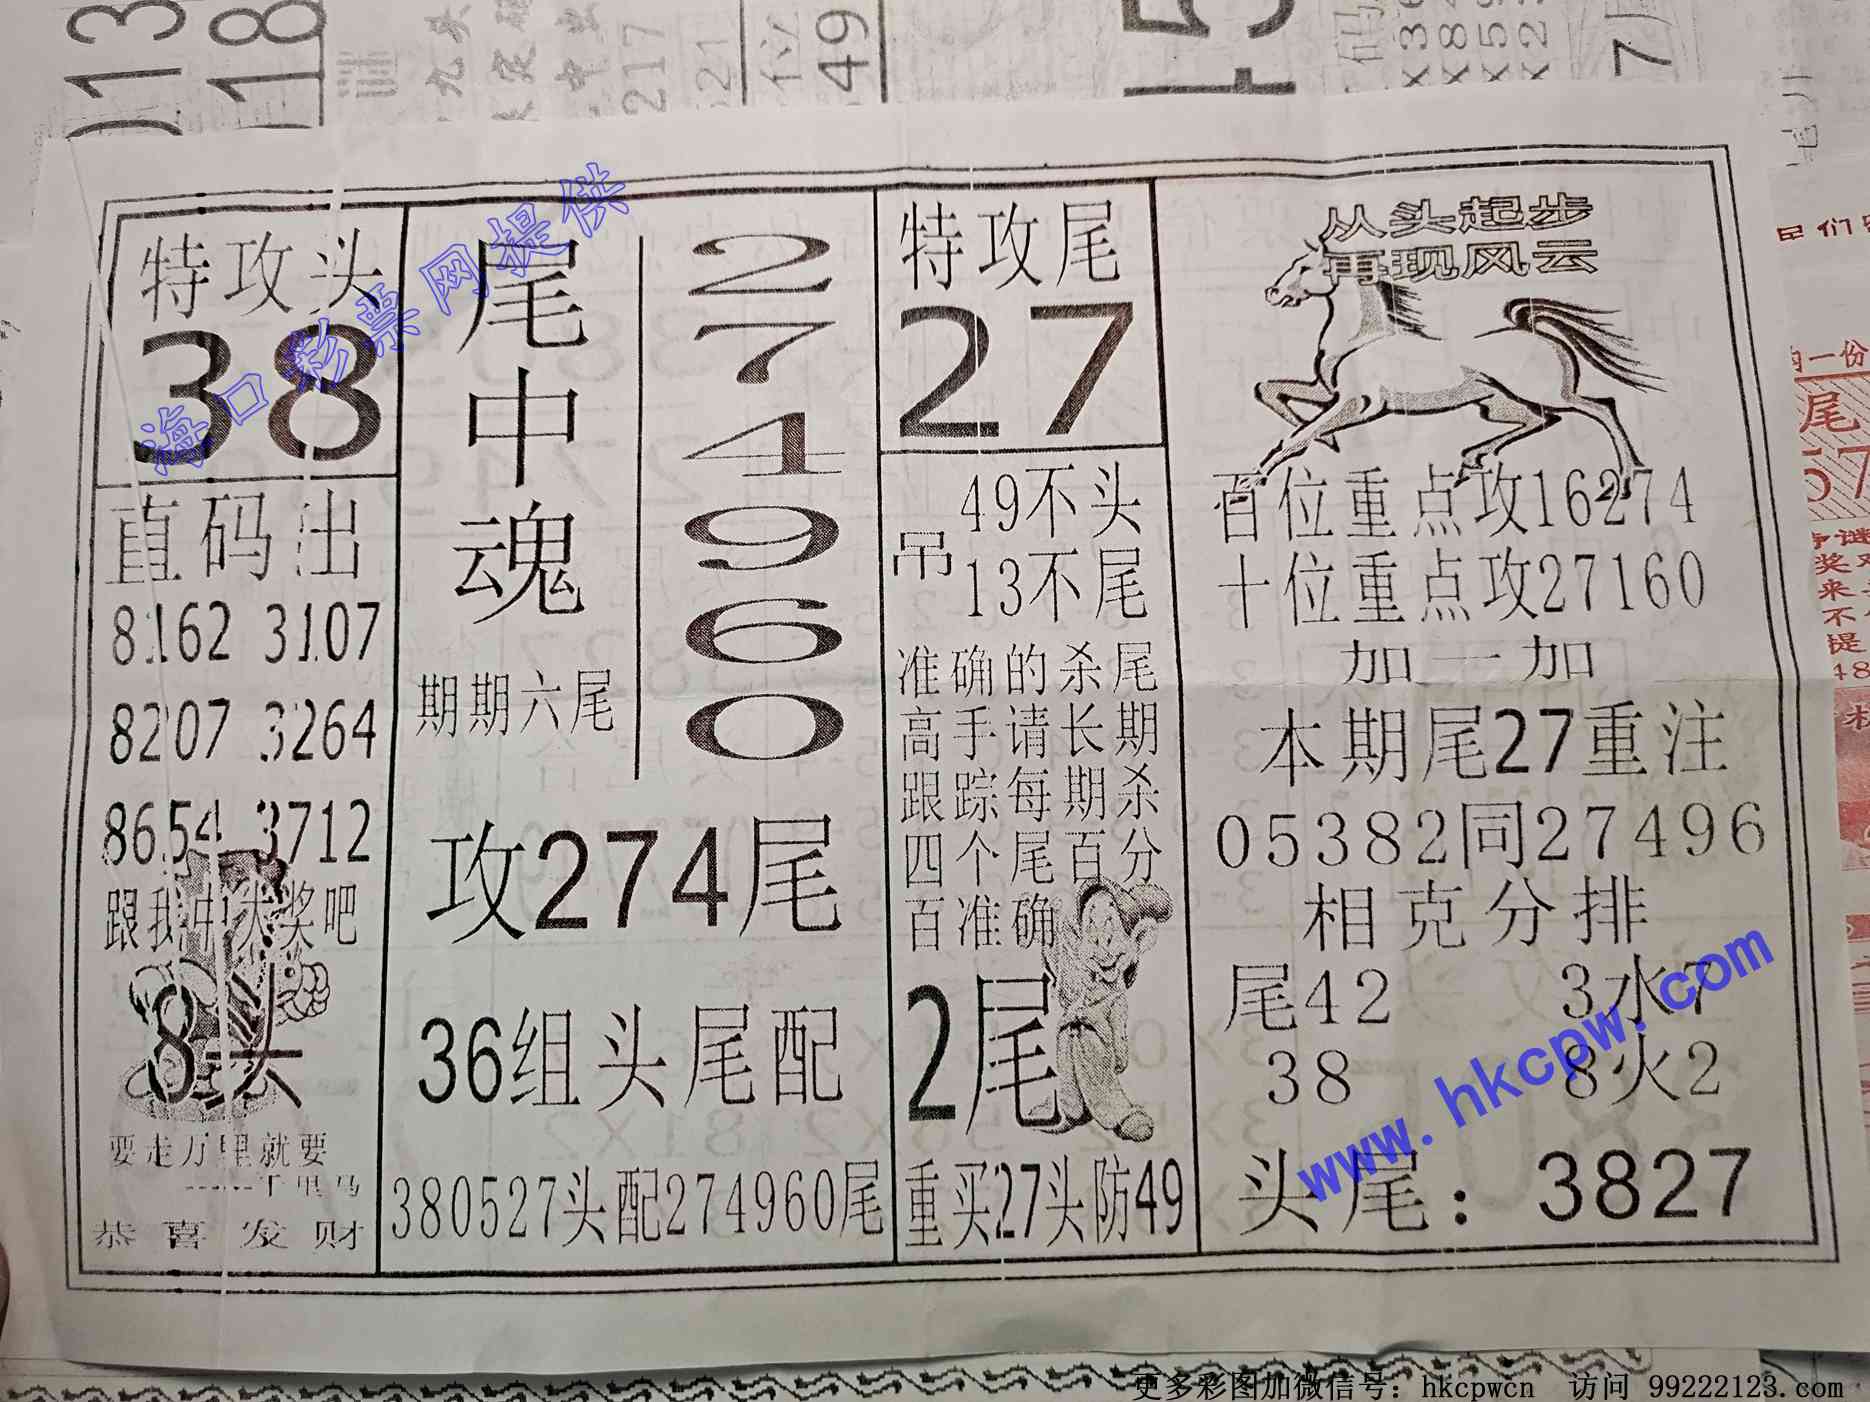 特攻头
38
直码出
8162 3107
8207 3264
8654 3712
跟我中大奖吧
8头
要走万里就要
------千里马
恭喜发财
尾中魂
期期六尾
2
7
4
9
6
0
攻274尾
36组头尾配
380527头配274960尾
特攻尾
27
吊
49不头
13不尾
准确的杀尾
高手请长期
跟踪每期杀
四个尾百分
百准确
2尾
重买27头防49
从头起步
再现风云
百位重点攻16274
十位重点攻27160
加一加
本期尾27重注
05382同27496
相克分排
尾42 3水7
38 8火2
头尾：3827
海口彩票网提供
www.hkcpw.com
更多彩图加微信号：hkcpwcn 访问 99222123.com
013
18
217
49
尾
57